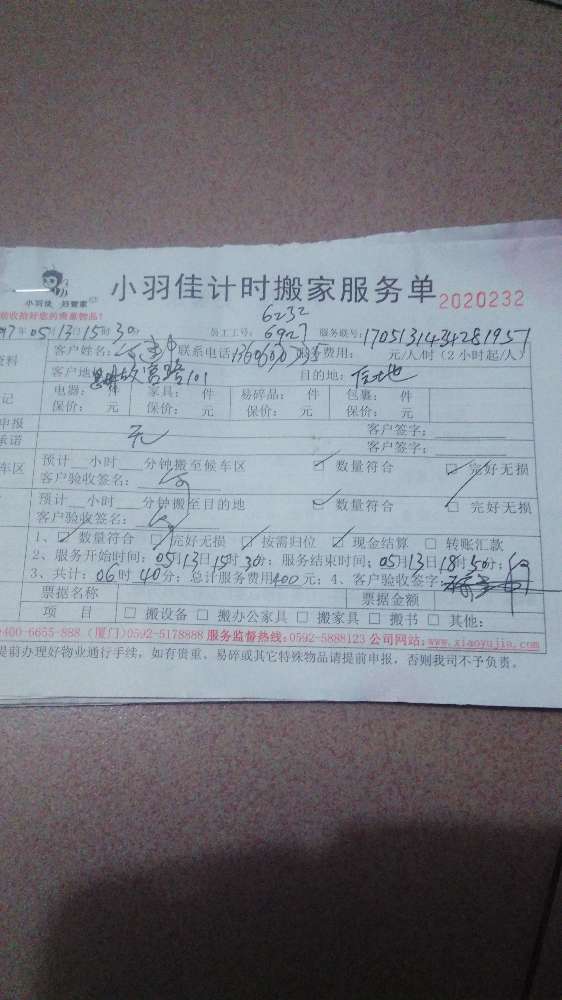 小羽佳 好管家
小羽佳计时搬家服务单 2020232
前收拾好您的贵重物品!
6232
7年05月13日15时30 员工工号: 6927 服务联号: 1705131434281957
资料 客户姓名: 联系电话 服务费用: 元/人/时 (2小时起/人)
客户地 思明故宫路101 目的地:
记 电器: 件 家具: 件 易碎品: 件 包裹: 件
保价: 元 保价: 元 保价: 元 保价: 元
申报 无 客户签字:
承诺 客户签字:
车区 预计__小时__分钟搬至候车区 ☑ 数量符合 ☑ 完好无损
客户验收签名:
预计__小时__分钟搬至目的地 ☑ 数量符合 ☑ 完好无损
客户验收签名:
1、☑ 数量符合 ☑ 完好无损 ☑ 按需归位 ☑ 现金结算 □ 转账汇款
2、服务开始时间: 05月13日15时30分; 服务结束时间: 05月13日18时50分;
3、共计: 06时40分; 总计服务费用400元; 4、客户验收签字:
票据名称 票据金额
项 目 □ 搬设备 □ 搬办公家具 □ 搬家具 □ 搬书 □ 其他:
400-6655-888 (厦门)0592-5178888 服务监督热线:0592-5888123 公司网站:www.xiaoyujia.com
提前办理好物业通行手续, 如有贵重、易碎或其它特殊物品请提前申报, 否则我司不予负责。